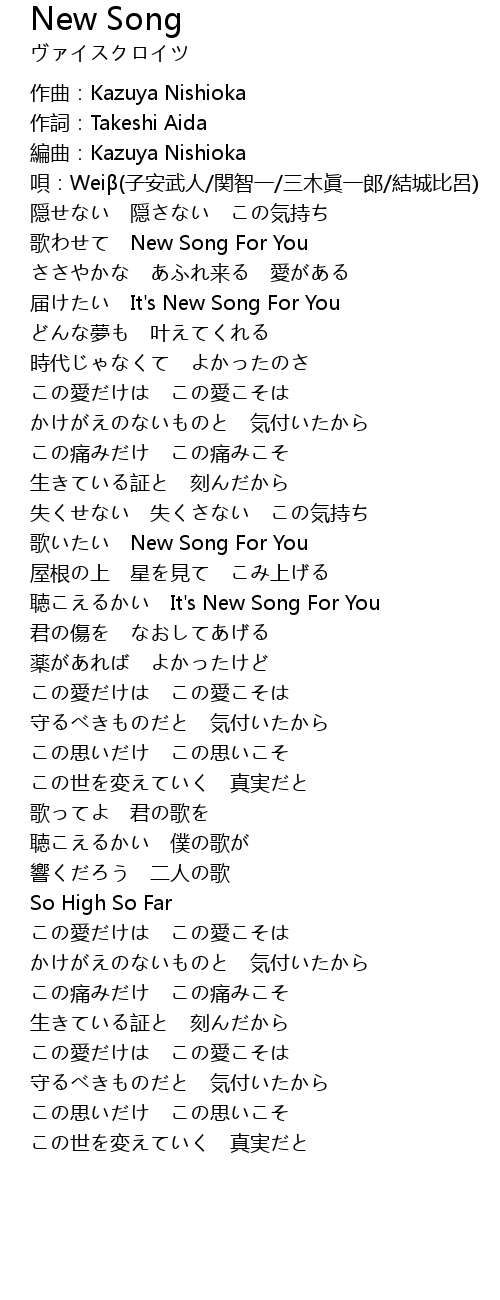 New Song
ヴァイスクロイツ
作曲：Kazuya Nishioka
作詞：Takeshi Aida
編曲：Kazuya Nishioka
唄：Weiβ(子安武人/関智一/三木眞一郎/結城比呂)
隠せない　隠さない　この気持ち
歌わせて　New Song For You
ささやかな　あふれ来る　愛がある
届けたい　It's New Song For You
どんな夢も　叶えてくれる
時代じゃなくて　よかったのさ
この愛だけは　この愛こそは
かけがえのないものと　気付いたから
この痛みだけ　この痛みこそ
生きている証と　刻んだから
失くせない　失くさない　この気持ち
歌いたい　New Song For You
屋根の上　星を見て　こみ上げる
聴こえるかい　It's New Song For You
君の傷を　なおしてあげる
薬があれば　よかったけど
この愛だけは　この愛こそは
守るべきものだと　気付いたから
この思いだけ　この思いこそ
この世を変えていく　真実だと
歌ってよ　君の歌を
聴こえるかい　僕の歌が
響くだろう　二人の歌
So High So Far
この愛だけは　この愛こそは
かけがえのないものと　気付いたから
この痛みだけ　この痛みこそ
生きている証と　刻んだから
この愛だけは　この愛こそは
守るべきものだと　気付いたから
この思いだけ　この思いこそ
この世を変えていく　真実だと